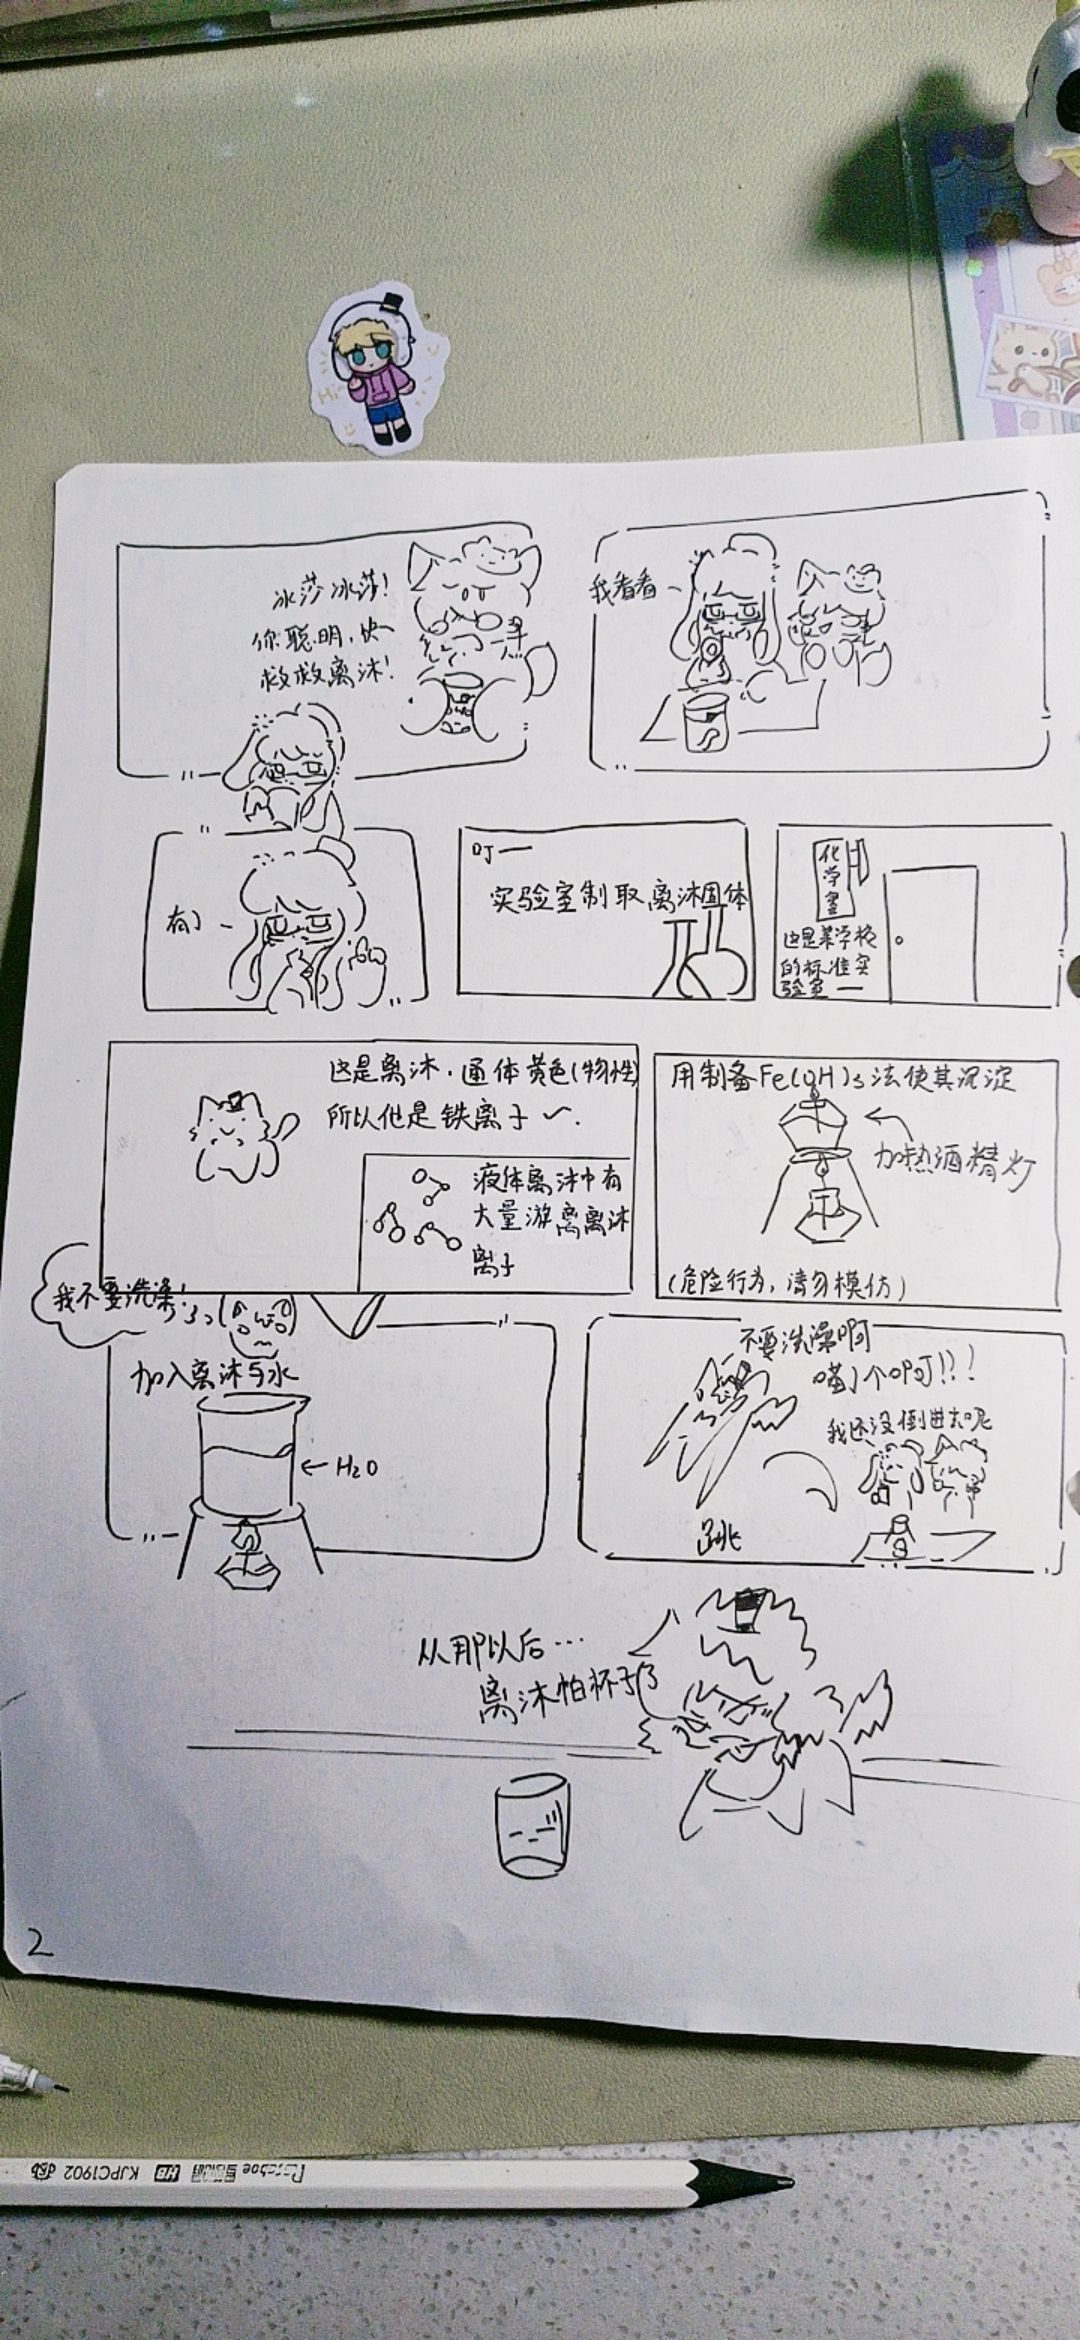 冰莎冰莎!
你聪明,快
救救离沐!
我看看
有了
叮一
实验室制取离沐固体
化学室
这是某学校
的标准实
验室一
这是离沐,通体黄色(物性)
所以他是铁离子
液体离沐中有
大量游离离沐
离子
用制备Fe(OH)3法使其沉淀
加热酒精灯
(危险行为,请勿模仿)
我不要洗澡!
加入离沐与水
←H2O
不要洗澡啊
喵了个咪!?!
我还没倒进去呢
跳
从那以后…
离沐怕杯子了
2
Hi
KJPC1902 HB